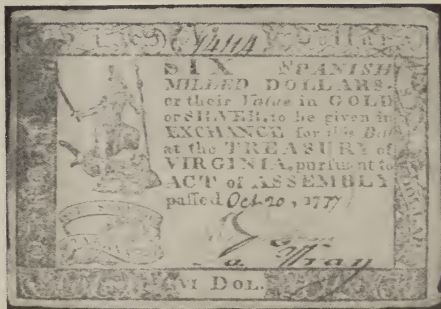 Six Dollars
N° 4114
SIX SPANISH
MILLED DOLLARS,
or their Value in GOLD
or SILVER, to be given in
EXCHANGE for this Bill
at the TREASURY of
VIRGINIA, pursuant to
ACT of ASSEMBLY
passed Oct. 20, 1777
VI DOL.
DOLLARS